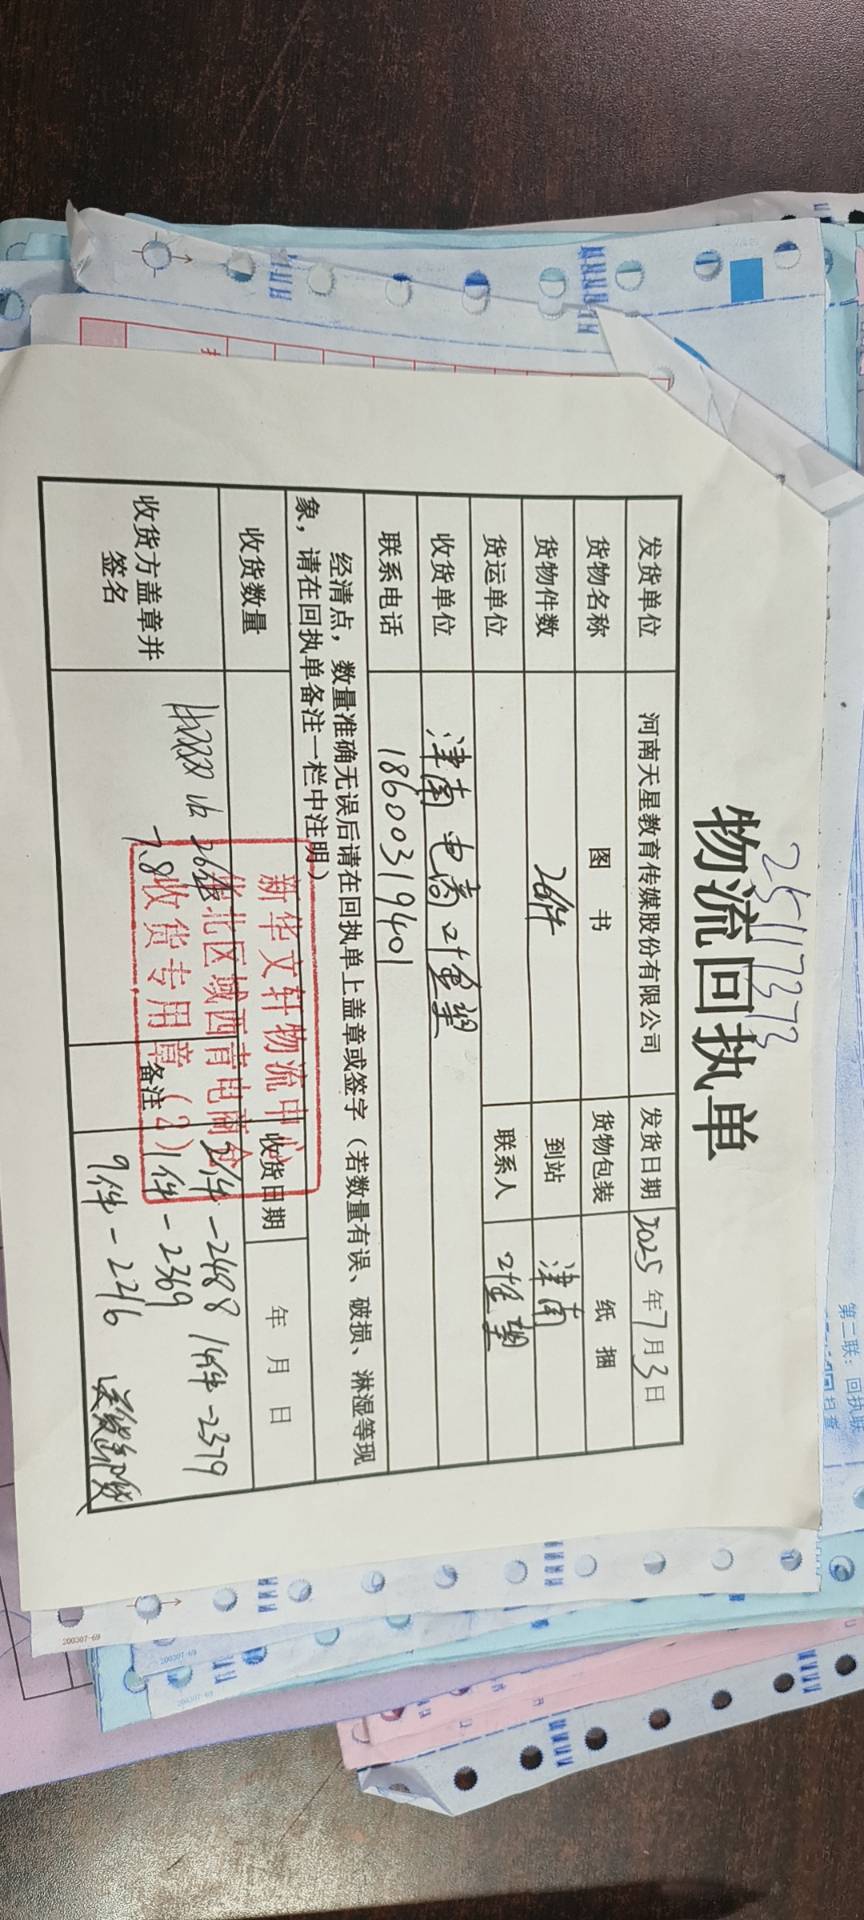 25117373
物流回执单
发货单位 河南天星教育传媒股份有限公司 发货日期 2025年7月3日
货物名称 图书 货物包装 纸捆
货物件数 26件 到站 津南
货运单位 联系人
收货单位 津南电商
联系电话 18600319401
经清点，数量准确无误后请在回执单上盖章或签字（若数量有误、破损、淋湿等现
象，请在回执单备注一栏中注明）
收货数量 收货日期 年 月 日
收货方盖章并
签名
26件
7.8
备注
2件-2488 14件-2379
1件-2369
9件-2216
新华文轩物流中心
华北区域西青电商仓
收货专用章(2)
第二联：回执联
200307-69
200307-69
200307-69